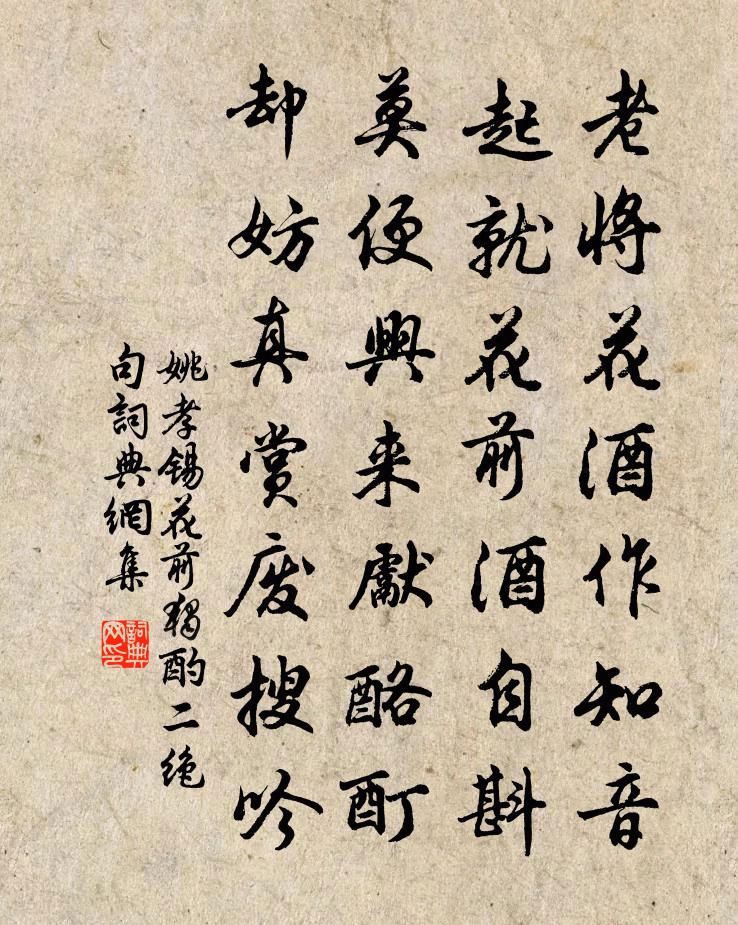 老將花酒作知音
起就花前酒自斟
莫便興来獻酩酊
却妨真賞廢搜吟
姚孝錫花前獨酌二絶
句詞典網集
詞典网印